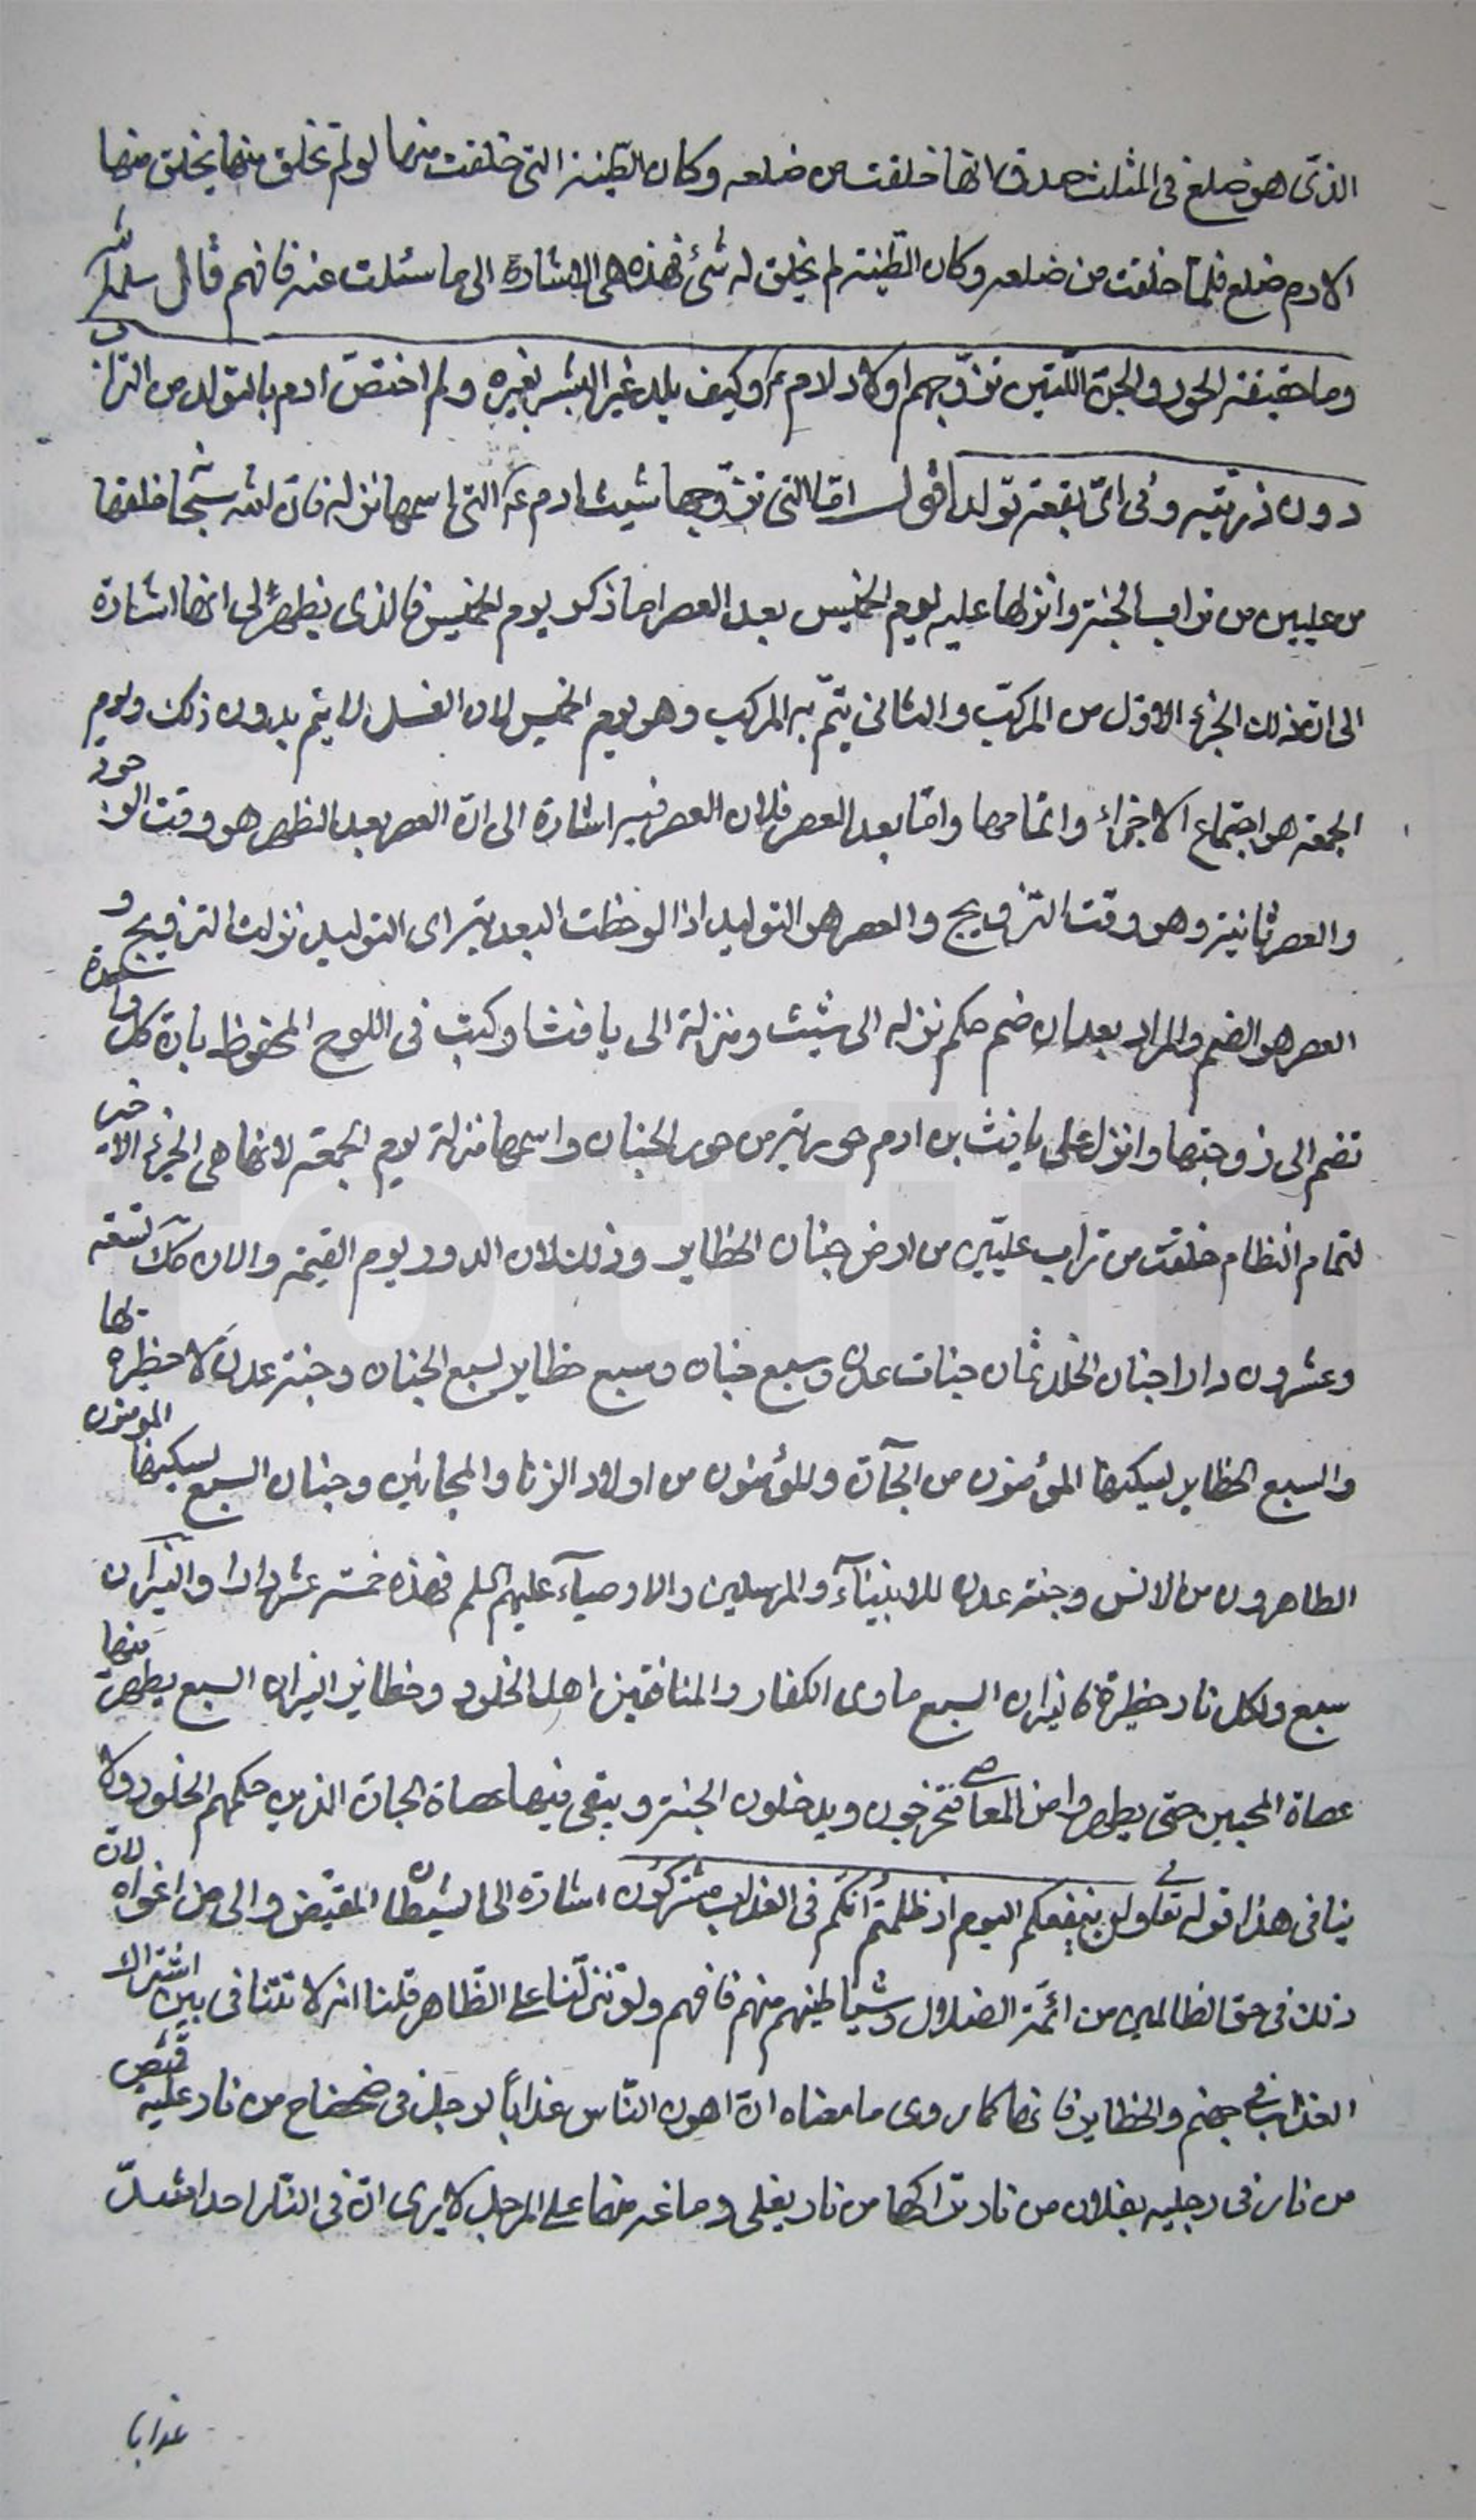 الذى هو ضلع فى المثلث صدق انها خلقت من ضلعه وكان الطينة التى خلقت منها لو لم تخلق منها يخلق منها
لادم ضلع فلما خلقت من ضلعه وكان الطينة لم يخلق له شئ فهذه هى الاشارة الى ما سئلت عنه فافهم قال سلمه الله
وما حقيقة الحور والجنة اللتين تزوجهم اولاد لادم ع وكيف يلد غير البشر بغيره ولم اختص ادم بالتولد من التراب
دون ذريته وفى اى بقعة تولد اقول اما التى تزوجها شيث ادم ع التى اسمها نزله فان الله سبحا خلقها
من عليين من تراب الجنة وانزلها عليه يوم الخميس بعد العصر اما ذكر يوم الخميس فالذى يظهر لى انها اشارة
الى ان تمذلك الجزء الاول من المركب والثانى يتم به المركب وهو يوم الخميس لان الغسل لا يتم بدون ذلك ويوم
الجمعة هو اجتماع الاجزاء واتمامها واما بعد العصر فلان العصر فيه اشارة الى ان العصر بعد الظهر هو وقت الوز
والعصر ثانية وهو وقت التزويج والعصر هو التوليد اذا لوحظت البعدية اى التوليد نزلت التزويج و
العصر هو الضم والمراد بعد ان ضم حكم نزله الى شيث ومنزلة الى يافث او كتب فى اللوح المحفوظ بان كل
تضم الى زوجتها وانزل على يافث بن ادم حورية من حور الجنان واسمها منزلة يوم الجمعة لانها هى الجزء الاخير
لتمام النظام خلقت من تراب عليين من ارض جنان الحظاير وذلك لان الدور يوم القيمة والان تسعة
وعشرون دارا جنان الخلد ثمان جنات عدن وسبع جنان وسبع حظاير لسبع الجنان وجنة عدن لا حظيرة لها
والسبع الحظاير ليسكنها المؤمنون من الجآن والمؤمنون من اولاد الزنا والمجانين وجنان السبع ليسكنها المومنون
الطاهرون من الانس وجنة عدن للانبيآء والمرسلين والاوصيآء عليهم السلم فهذه خمسة عشر دارا والنيران
سبع ولكل نار حظيرة فانيران السبع ماوى الكفار والمنافقين اهل الخلود وحظاير النيران السبع يطهر منها
عصاة المحبين حتى يطهروا من المعاصى فتخرجون ويدخلون الجنة ويبقى فيها عصاة الجان الذين حكمهم الخلود ولا
ينافى هذا قوله تعا ولن ينفعكم اليوم اذ ظلمتم انكم فى العذاب مشتركون اشارة الى الشيطان المقيض والى من اغواه لان
ذلك فى حق الظالمين من ائمة الضلال وشياطينهم منهم فافهم ولو تنزلنا على الظاهر قلنا انه لا تتنافى بين اشتراك
العذاب فى جهنم والحظاير فانها كما روى ما معناه ان اهون الناس عذاباً لرجل فى ضحضاح من نار عليه قميص
من نار فى رجليه بغلان من نار شراكها من نار يغلى دماغه منها على المرجل لا يرى ان فى النار احدا اشد
عذابا